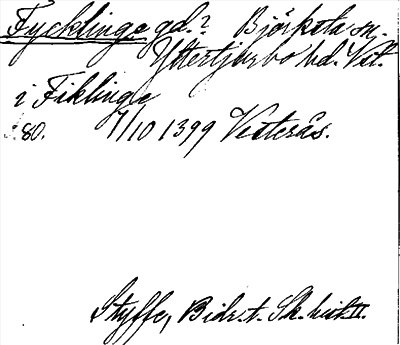 Fycklinge gd.? Björksta sn.
Yttertjurbo hd. Vstl.
i Fiklinge
80. 1/10 1399 Vesterås.
Styffe, Bidr. t. Sk. hist. II.